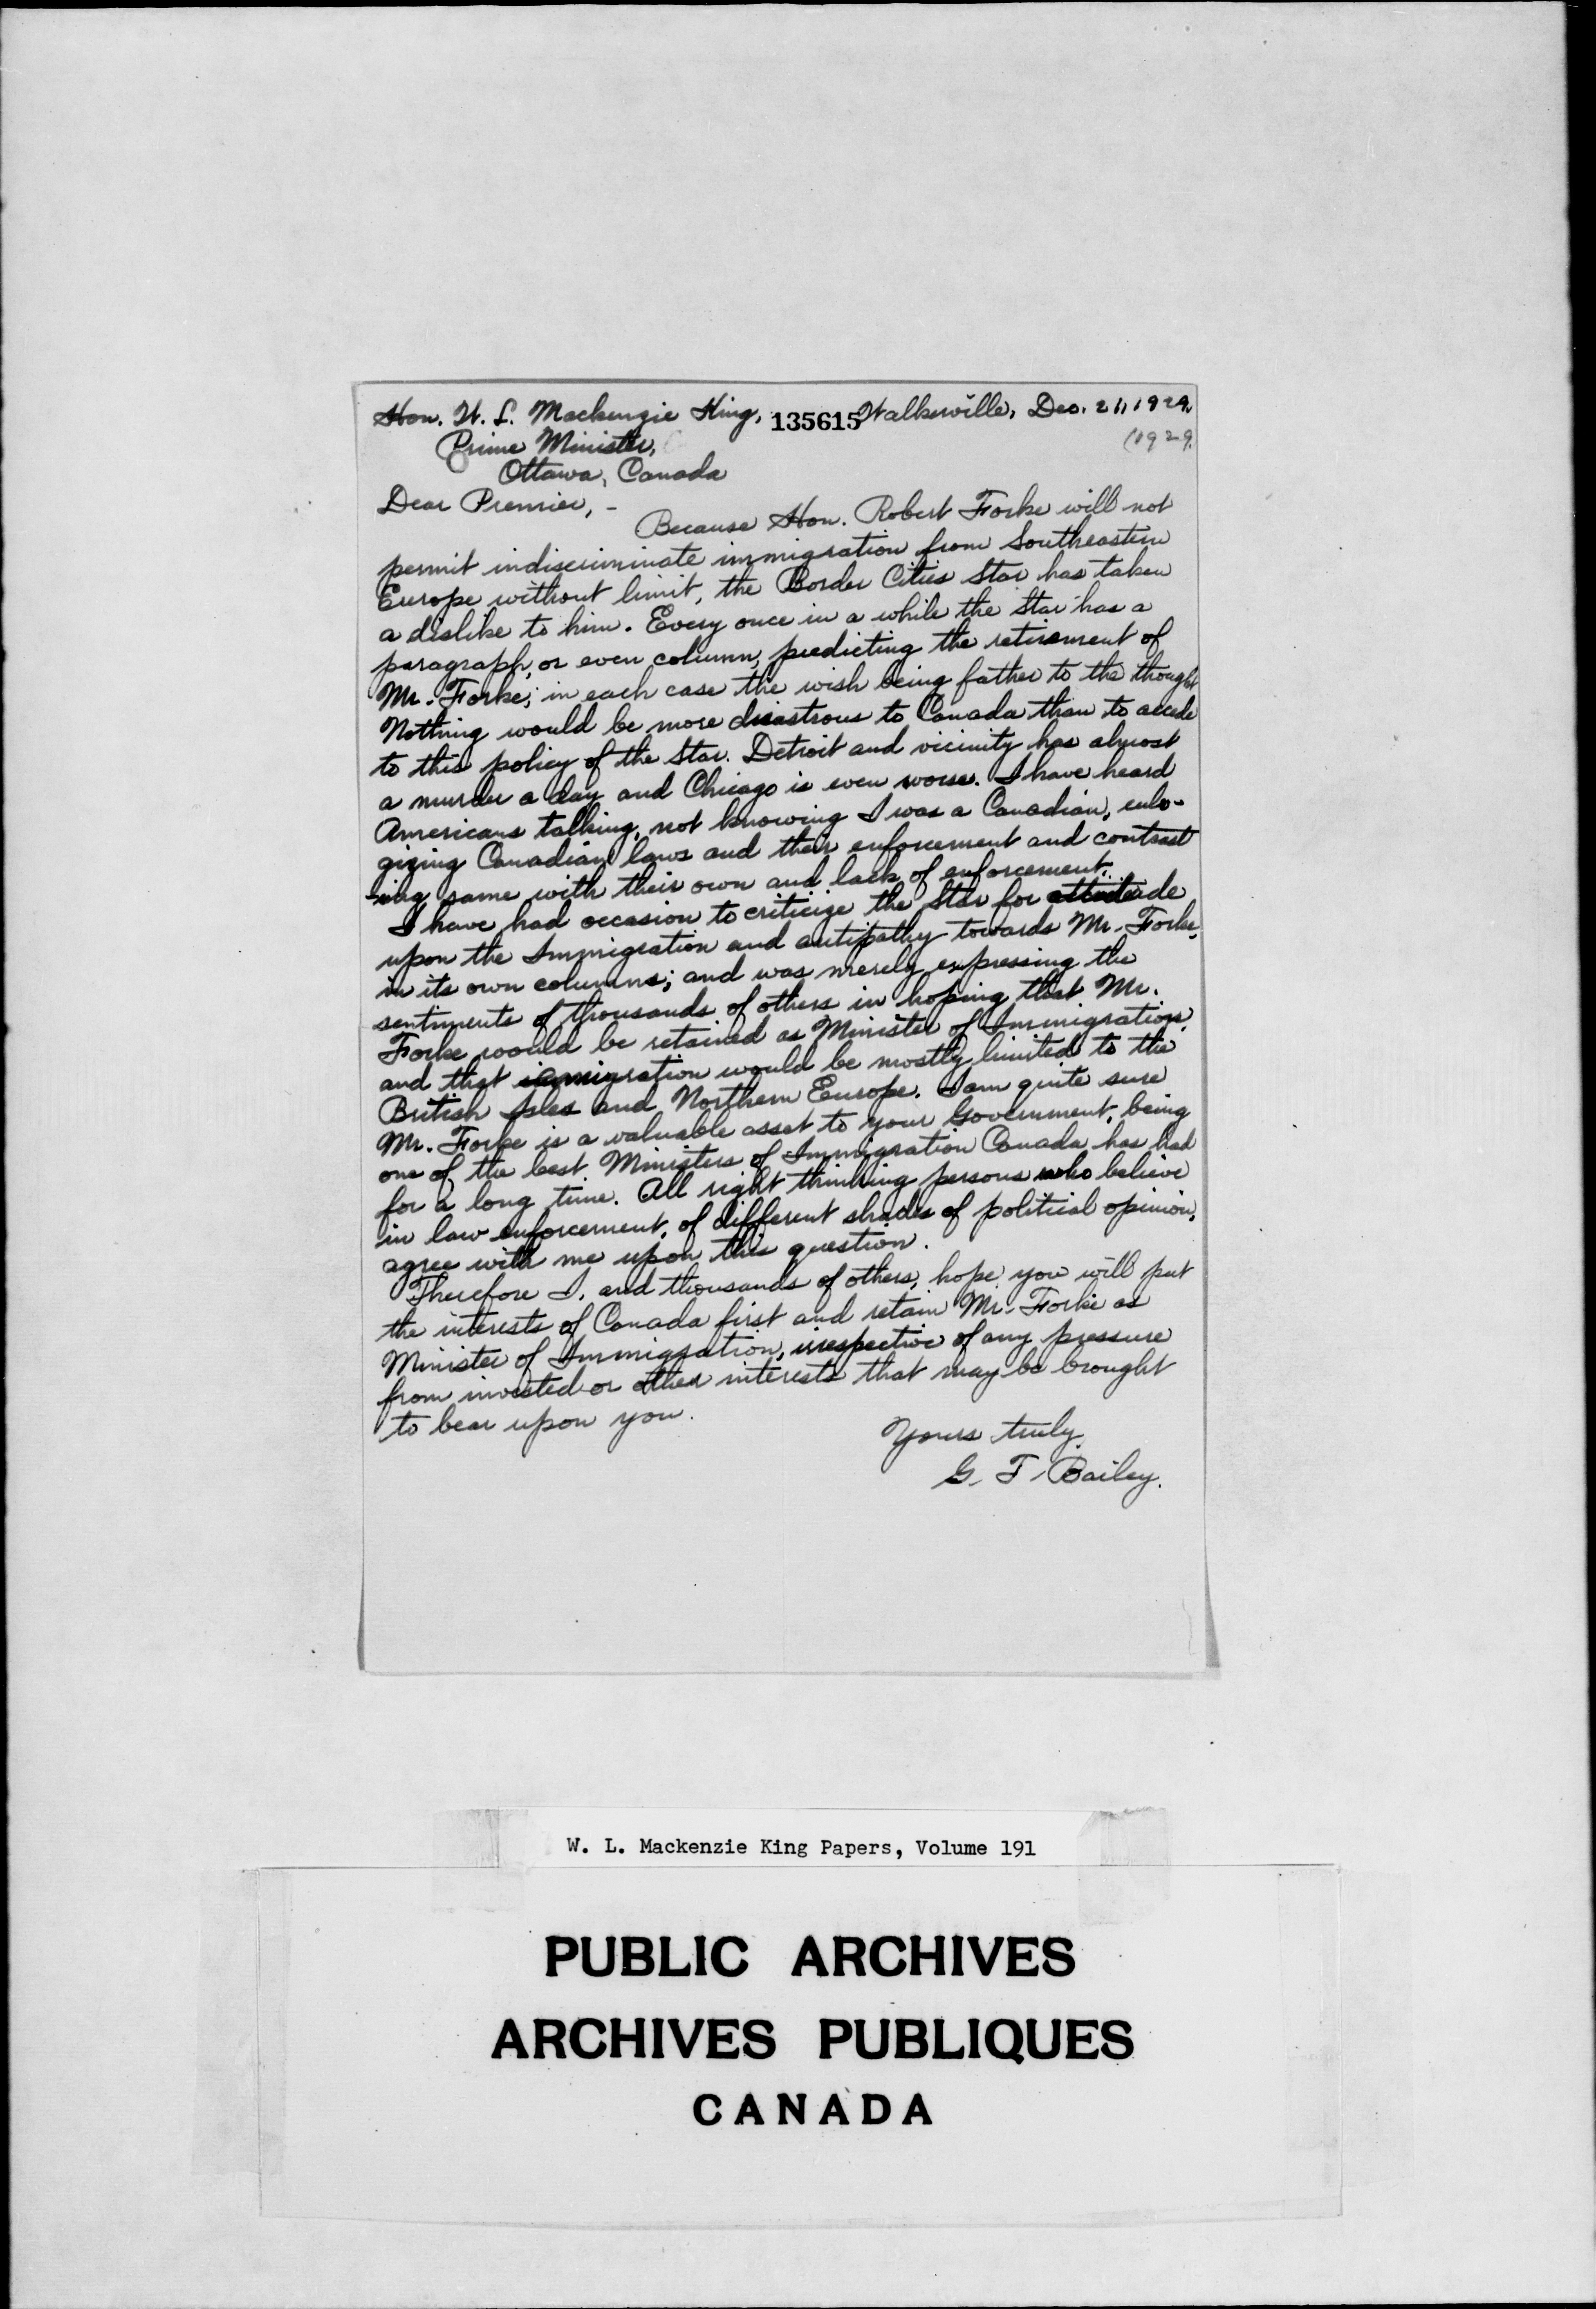 Hon. W. L. Mackenzie King, 135615 Walkerville, Dec. 21, 1929.
(1929.
Prime Minister,
Ottawa, Canada
Dear Premier, -
Because Hon. Robert Forke will not
permit indiscriminate immigration from Southeastern
Europe without limit, the Border Cities Star has taken
a dislike to him. Every once in a while the Star has a
paragraph, or even column, predicting the retirement of
Mr. Forke; in each case the wish being father to the thought
Nothing would be more disastrous to Canada than to accede
to this policy of the Star. Detroit and vicinity has almost
a murder a day and Chicago is even worse. I have heard
Americans talking, not knowing I was a Canadian, eulo-
gizing Canadian laws and their enforcement and contrast
-ing same with their own and lack of enforcement.
I have had occasion to criticize the Star for attitude
upon the Immigration and antipathy towards Mr. Forke,
in its own columns; and was merely expressing the
sentiments of thousands of others in hoping that Mr.
Forke would be retained as Minister of Immigration,
and that immigration would be mostly limited to the
British Isles and Northern Europe. I am quite sure
Mr. Forke is a valuable asset to your Government, being
one of the best Ministers of Immigration Canada has had
for a long time. All right thinking persons who believe
in law enforcement, of different shades of political opinion,
agree with me upon this question.
Therefore I, and thousands of others, hope you will put
the interests of Canada first and retain Mr. Forke as
Minister of Immigration, irrespective of any pressure
from invested or other interests that may be brought
to bear upon you.
Yours truly,
G. T. Bailey.
W. L. Mackenzie King Papers, Volume 191
PUBLIC ARCHIVES
ARCHIVES PUBLIQUES
CANADA